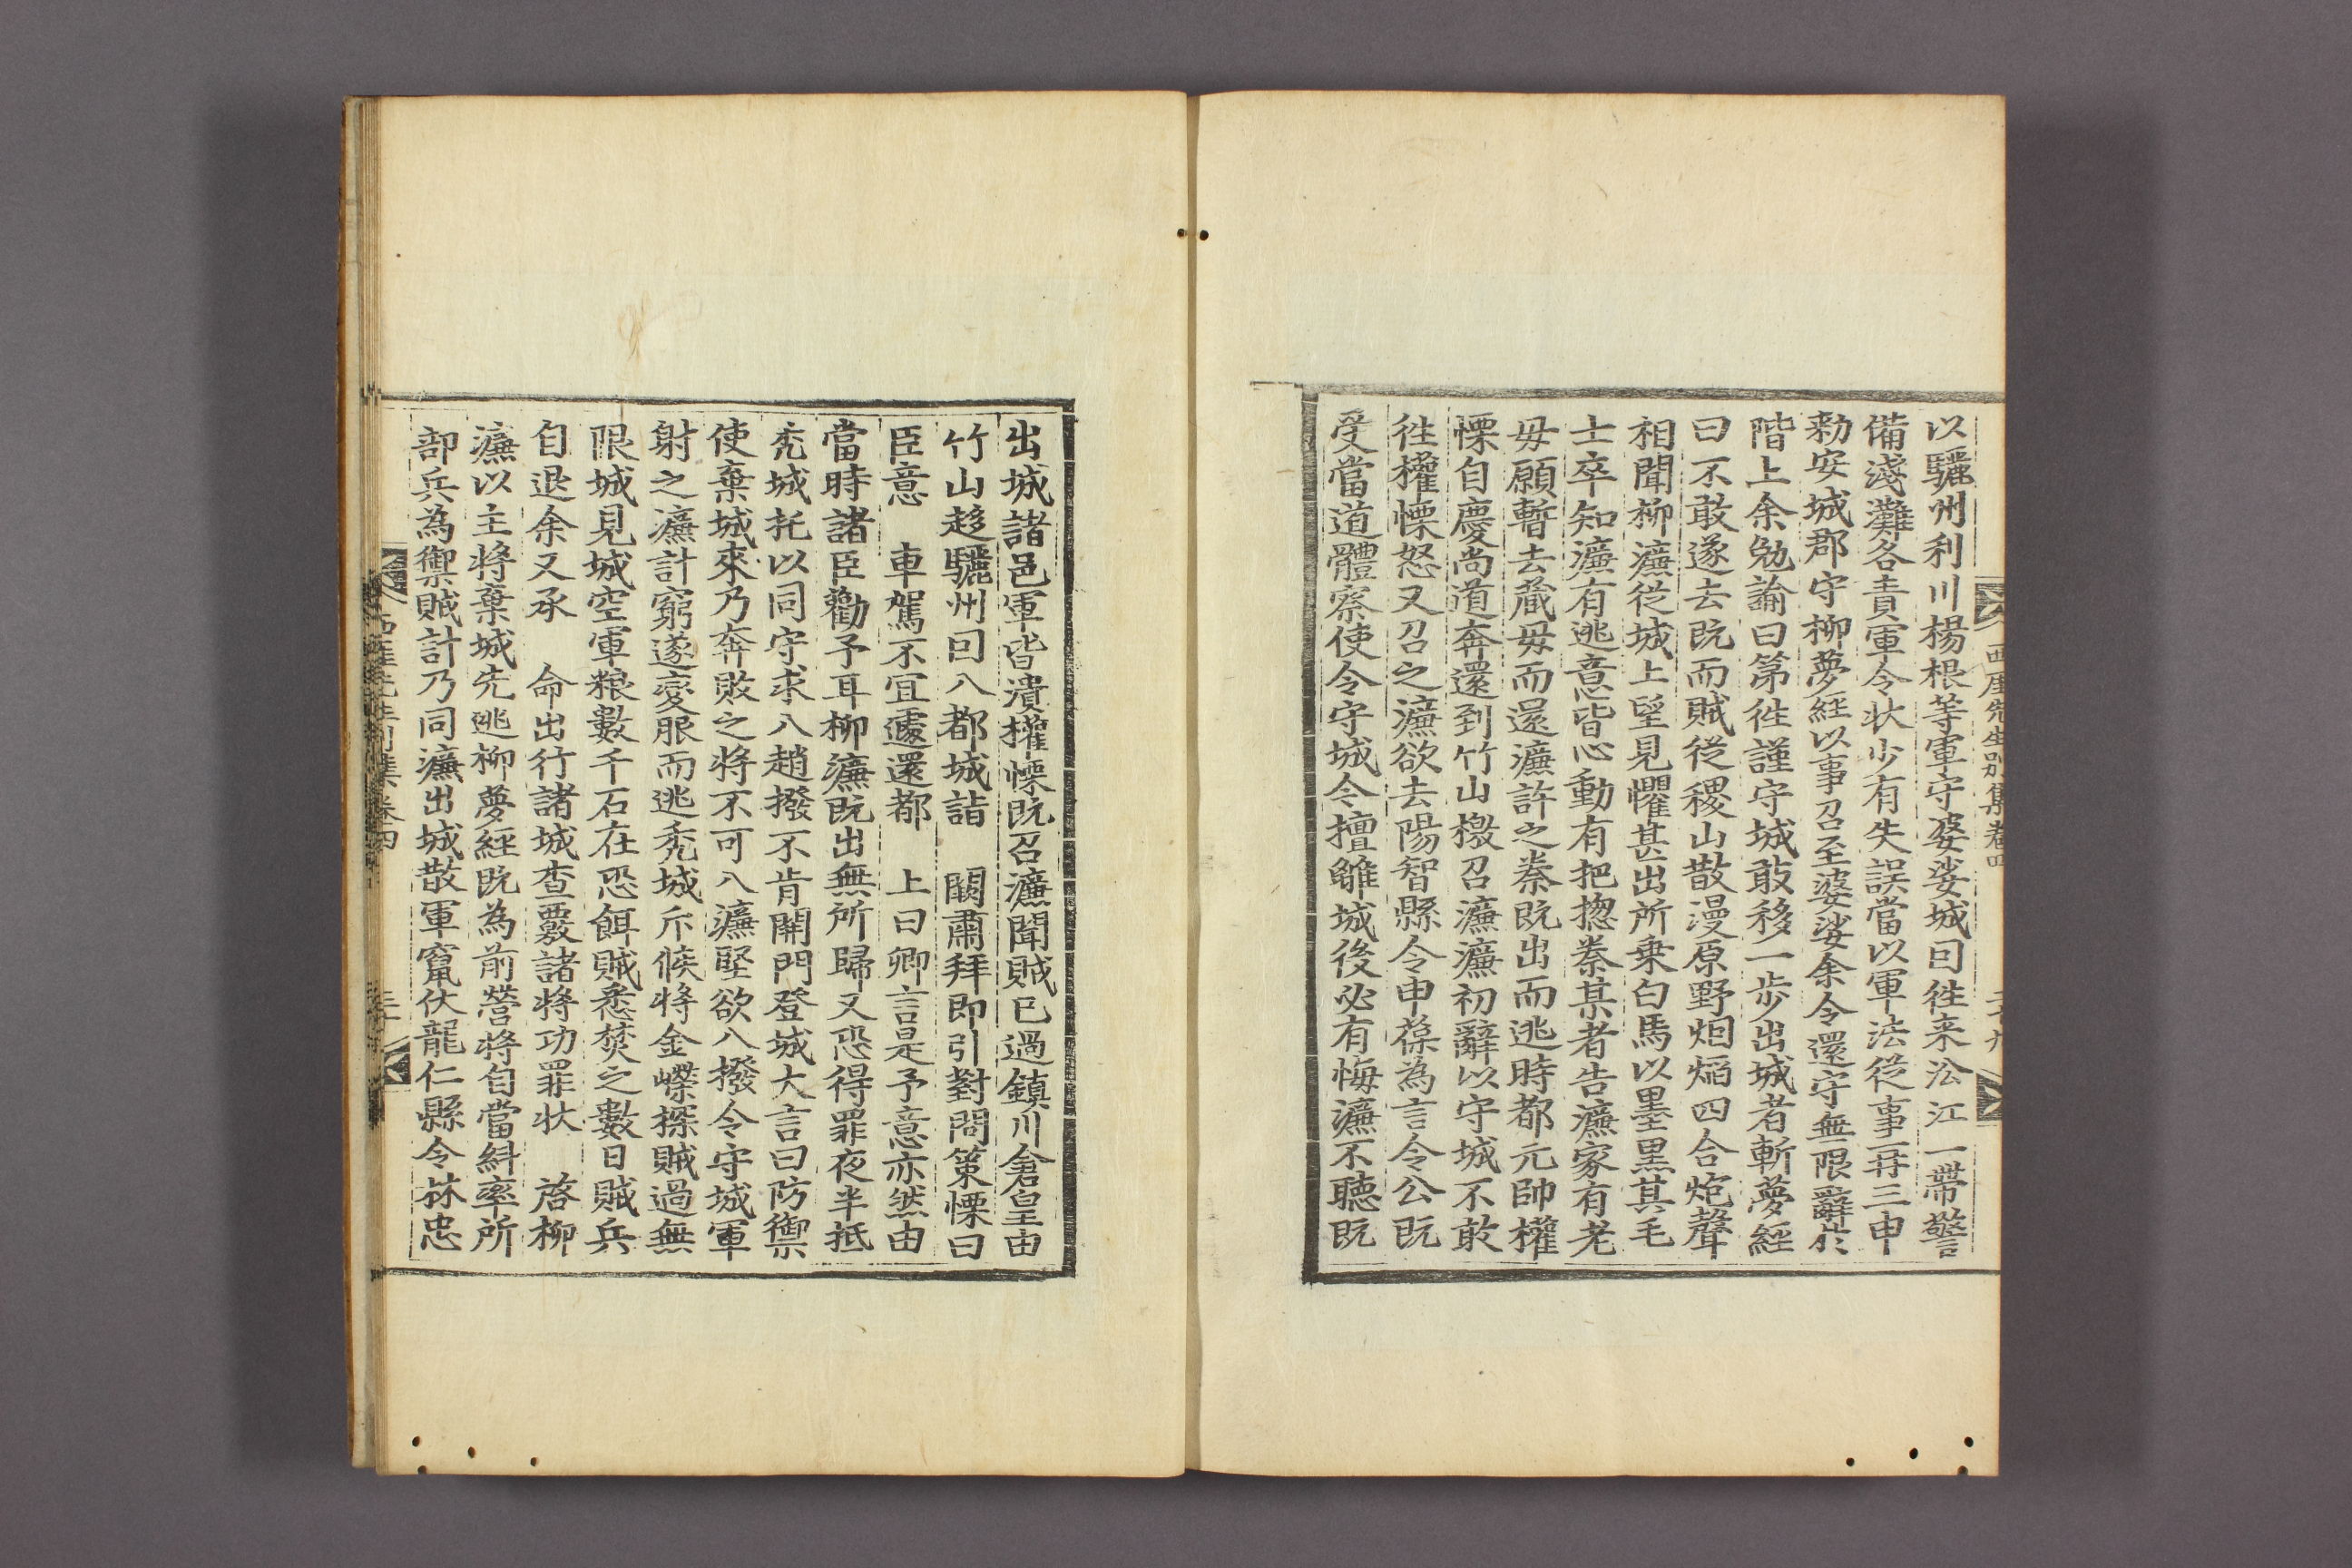 以驪州利川楊根等軍守婆娑城曰徃来㳂江一帶警
備淺灘各責軍令状少有失誤當以軍法從事再三申
勑安城郡守柳夢經以事召至婆娑余令還守無限辭於
階上余勉諭曰第徃謹守城敢移一步出城者斬夢經
曰不敢遂去既而賊從稷山散漫原野烟焰四合炮聲
相聞柳濂從城上望見懼甚出所乗白馬以墨黒其毛
士卒知濂有逃意皆心動有把揔秦某者告濂家有老
毋願暫去蔵毋而還濂許之秦既出而逃時都元帥權
慄自慶尚道奔還到竹山檄召濂濂初辭以守城不敢
徃權慄怒又召之濂欲去陽智縣令申葆為言令公既
受當道體察使令守城令擅離城後必有悔濂不聴既
西厓先生別集卷四
二十九
出城諸邑軍皆潰權慄既召濂聞賊已過鎮川倉皇由
竹山趍驪州回入都城詣　闕肅拜即引對問策慄曰
臣意　車駕不宜遽還都　上曰卿言是予意亦然由
當時諸臣勸予耳柳濂既出無所歸又恐得罪夜半抵
禿城托以同守求入趙撥不肯開門登城大言曰防禦
使棄城來乃奔敗之将不可入濂堅欲入撥令守城軍
射之濂計窮遂變服而逃禿城斥候将金嶸探賊過無
限城見城空軍粮數千石在恐餌賊悉焚之數日賊兵
自退余又承　命出行諸城查覈諸将功罪状　啓柳
濂以主将棄城先逃柳夢經既為前營将自當糾率所
部兵為禦賊計乃同濂出城散軍竄伏龍仁縣令林忠
西厓先生別集卷四
三十